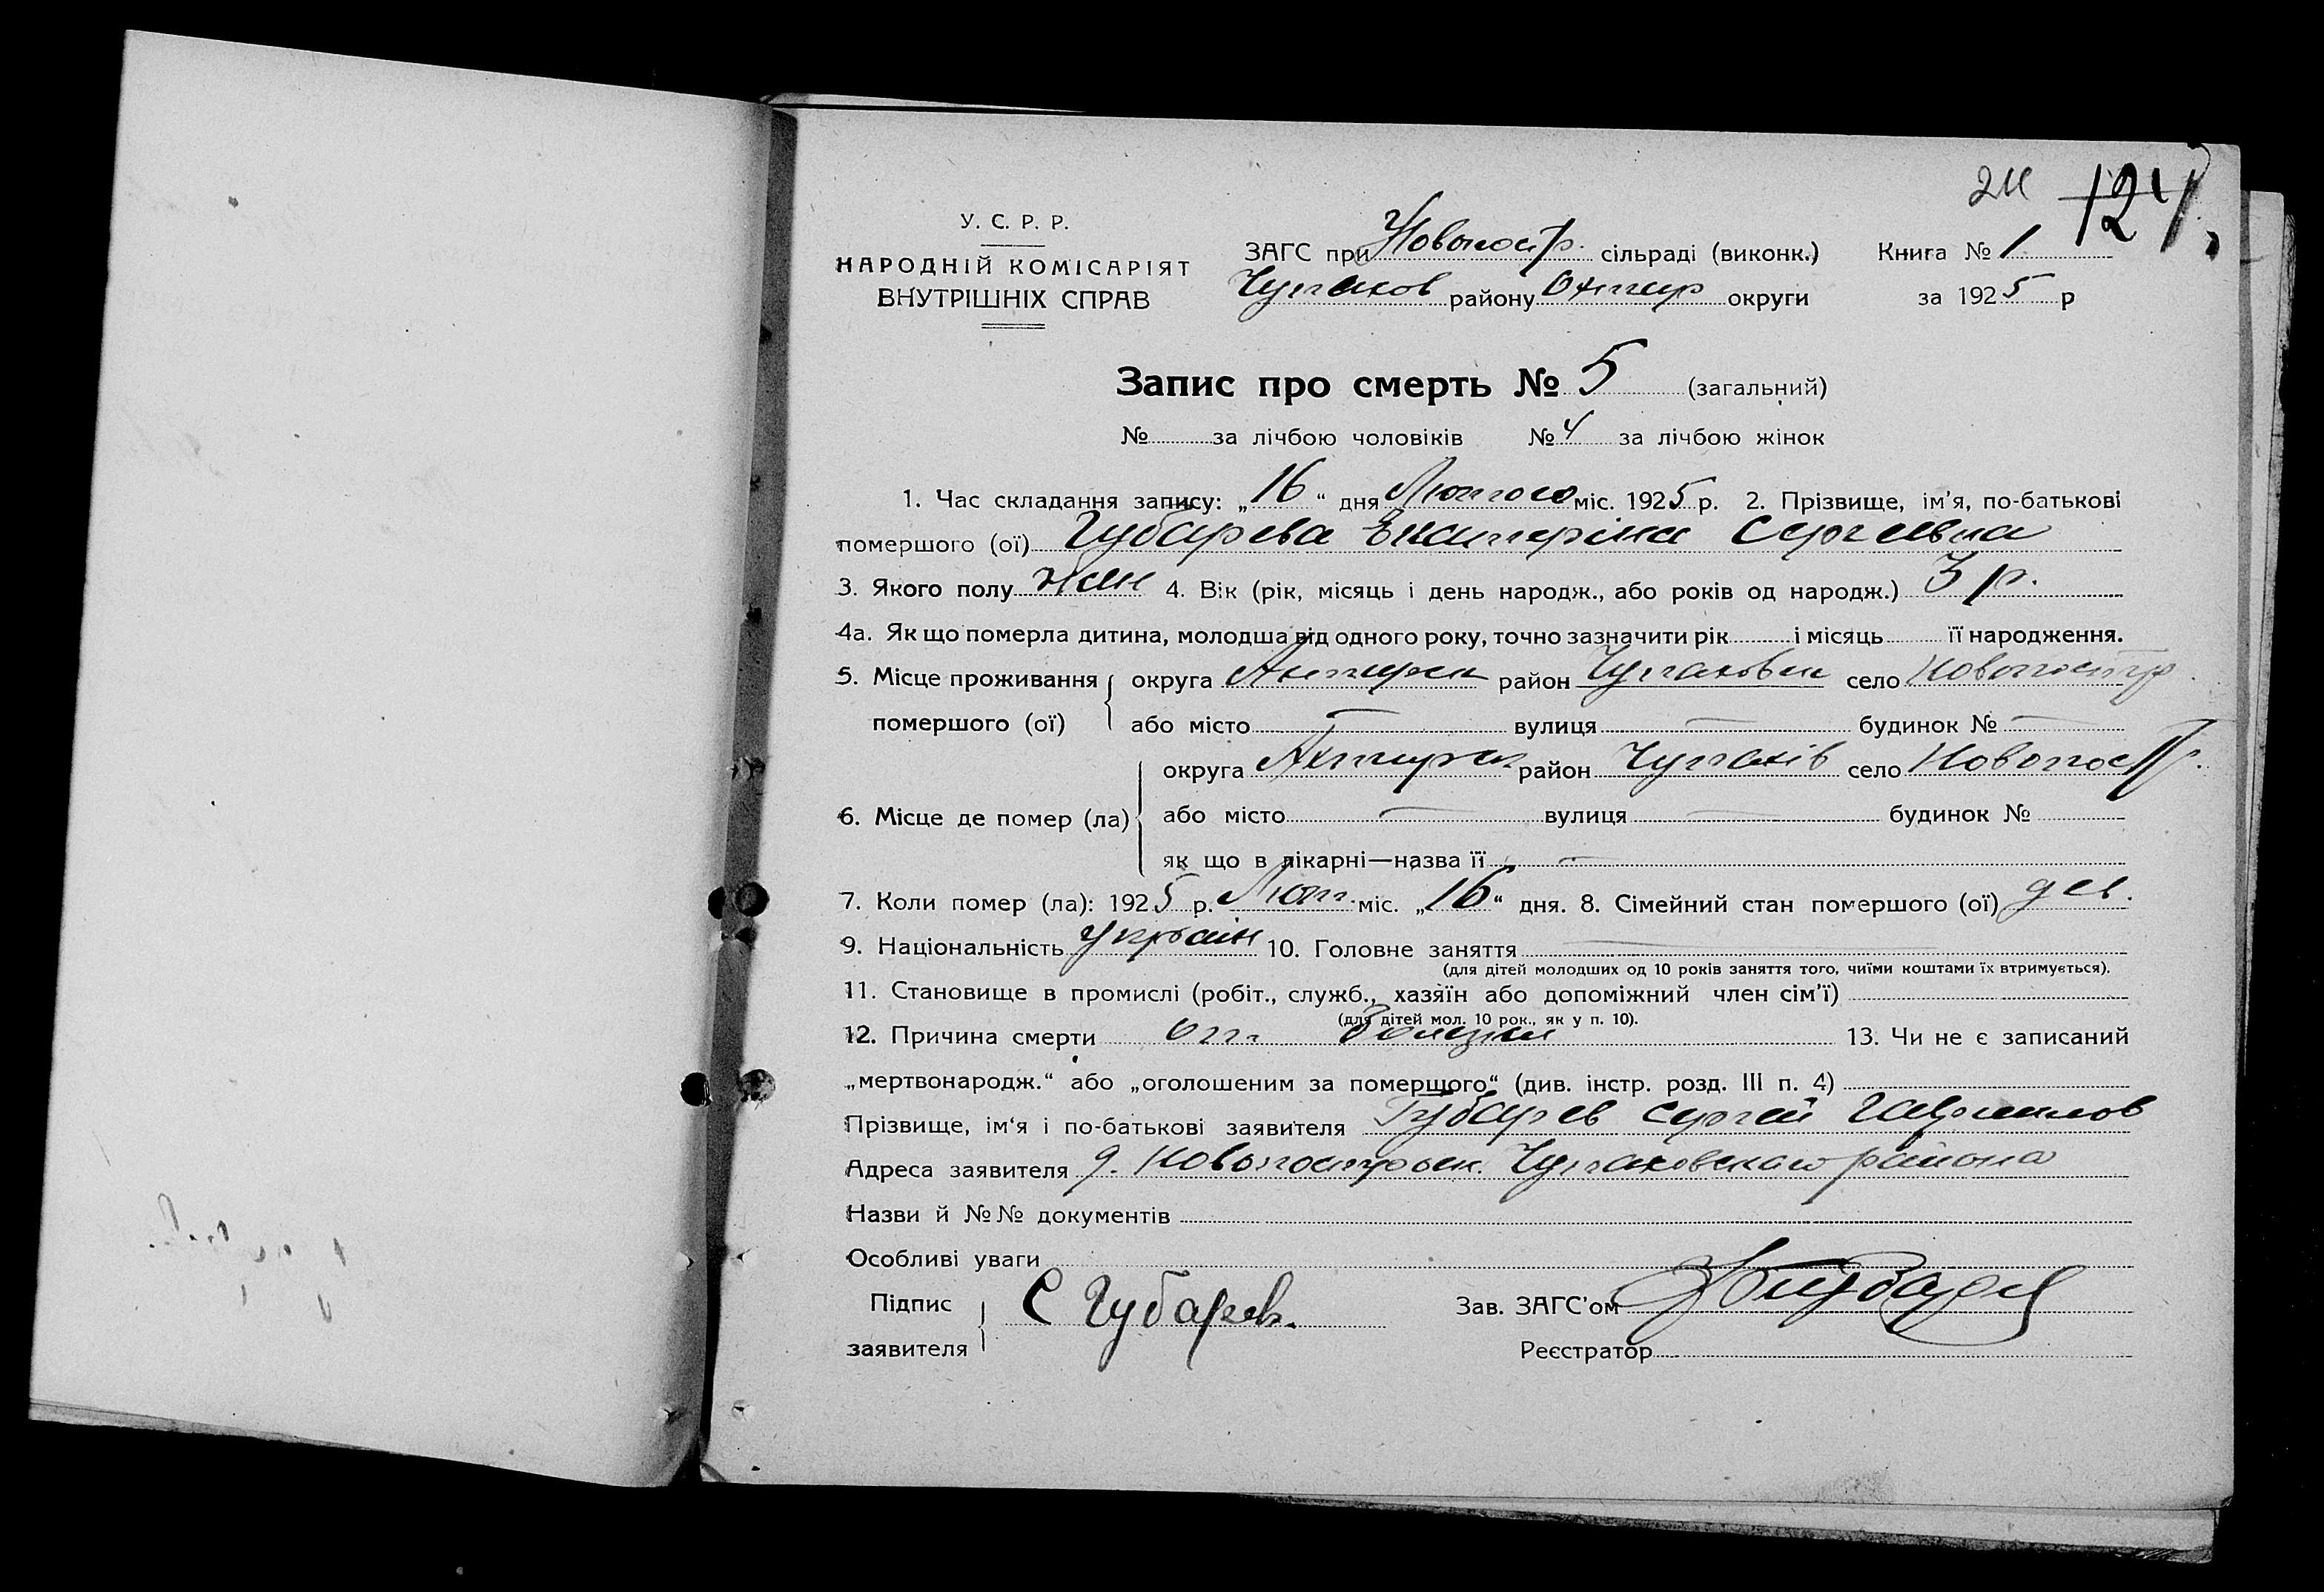 У. С. Р. Р.
НАРОДНІЙ КОМІСАРІЯТ
ВНУТРІШНІХ СПРАВ
ЗАГС при Новопостр. сільраді (виконк.) Книга № 1
Чупахов району Охтир округи за 1925 р
Запис про смерть № 5 (загальний)
№ за лічбою чоловіків № 4 за лічбою жінок
1. Час складання запису: „16“ дня Лютого міс. 1925 р. 2. Прізвище, ім'я, по-батькові
помершого (ої) Губарева Екатеріна Сергеевна
3. Якого полу жен 4. Вік (рік, місяць і день народж., або років од народж.) 3 р.
4а. Як що померла дитина, молодша від одного року, точно зазначити рік і місяць її народження.
5. Місце проживання округа Ахтирск район Чупаховск село Новопостр
помершого (ої) або місто — вулиця — будинок № —
округа Ахтирск район Чупахів село Новопостр.
6. Місце де помер (ла) або місто — вулиця — будинок №
як що в лікарні—назва її —
7. Коли помер (ла): 1925 р. Лют. міс. „16“ дня. 8. Сімейний стан помершого (ої) дев.
9. Національність Україн 10. Головне заняття —
(для дітей молодших од 10 років заняття того, чиїми коштами їх втримується).
11. Становище в промислі (робіт., служб., хазяїн або допоміжний член сім'ї)
(для дітей мол. 10 рок., як у п. 10).
12. Причина смерти от 13. Чи не є записаний
„мертвонародж.“ або „оголошеним за помершого“ (див. інстр. розд. III п. 4)
Прізвище, ім'я і по-батькові заявителя Губарев Сергей Гаврилов
Адреса заявителя д. Новопостроен. Чупаховскаго района
Назви й №№ документів
Особливі уваги
Підпис С Губарев. Зав. ЗАГС'ом
заявителя Реєстратор